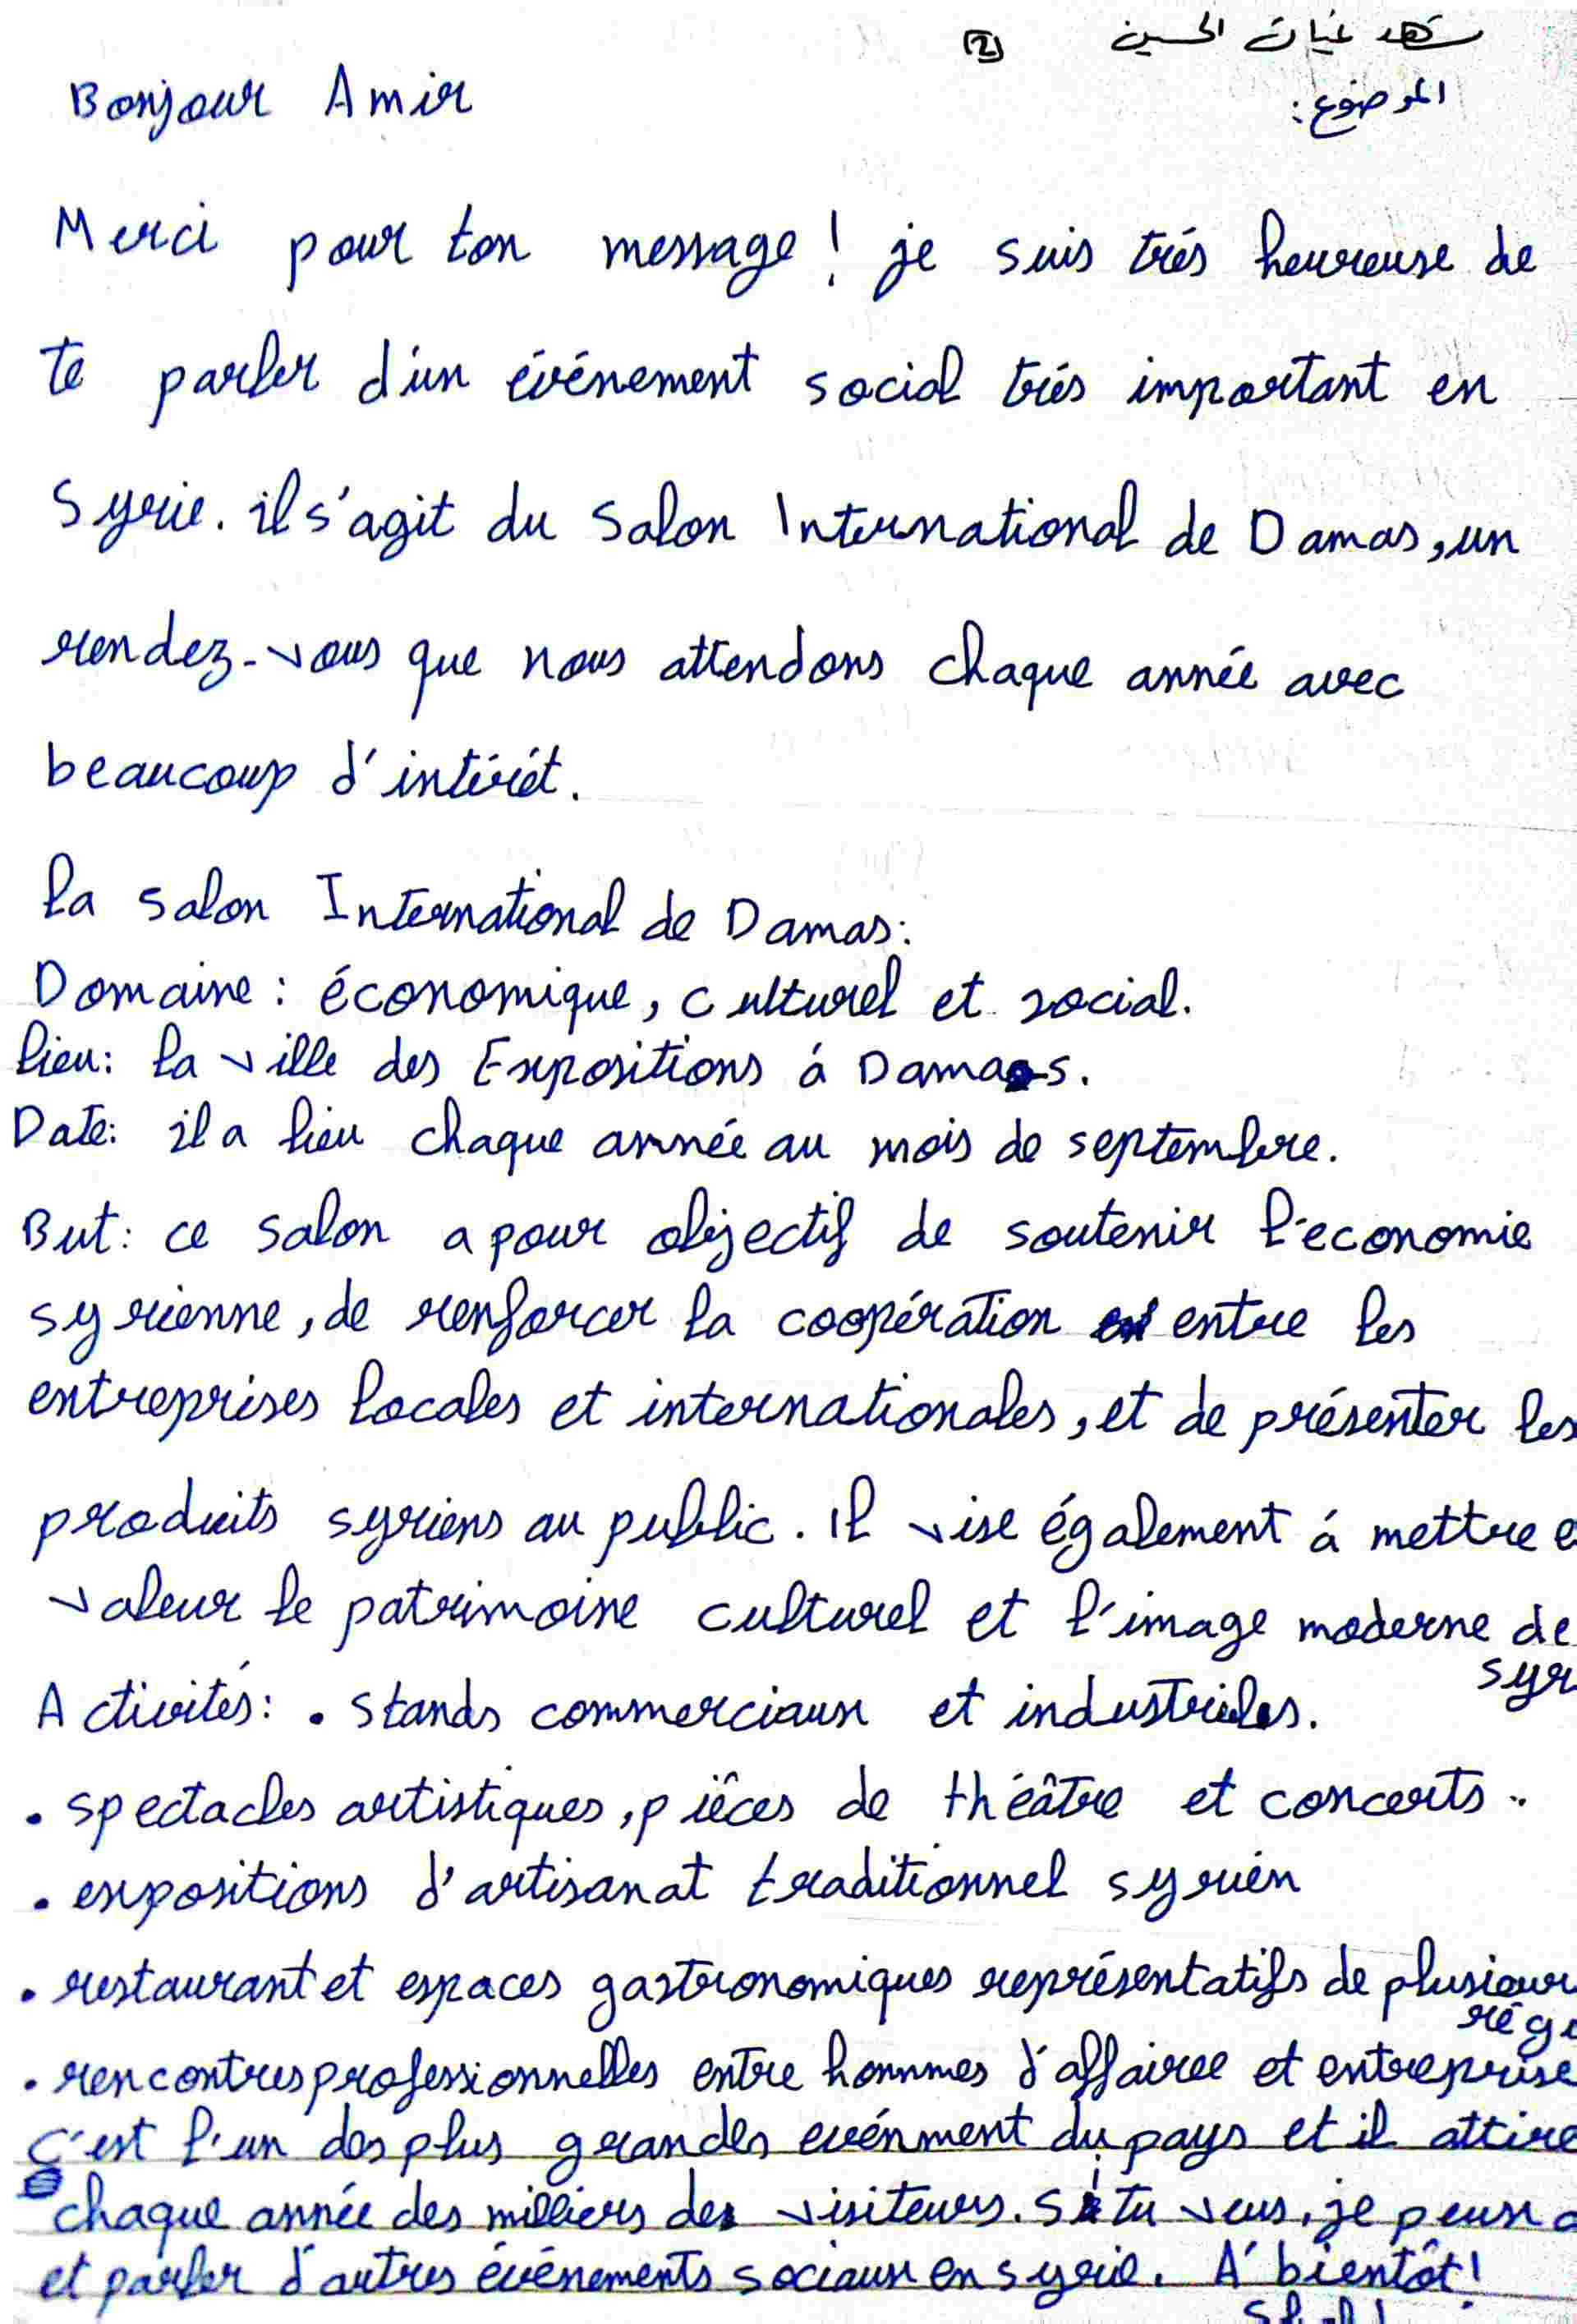 شهد غياث الحسين (2)
الموضوع:
Bonjour Amir
Merci pour ton message! je suis trés heureuse de
te parler d'un événement social trés important en
Syrie. il s'agit du Salon International de Damas, un
rendez-vous que nous attendons chaque année avec
beaucoup d'intérét.
la salon International de Damas:
Domaine: économique, culturel et social.
lieu: la ville des Expositions á Damas.
Date: il a lieu chaque année au mois de septembre.
But: ce salon a pour objectif de soutenir l'economie
syrienne, de renforcer la coopération entre les
entreprises locales et internationales, et de présenter les
produits syriens au public. Il vise également á mettre e
valeur le patrimoine culturel et l'image moderne de
syr
Activités: • Stands commerciaux et industriles.
• spectacles artistiques, piêces de théâtre et concerts.
• expositions d'artisanat traditionnel syrien
• restaurant et espaces gastronomiques représentatifs de plusieur
régi
• rencontres professionnelles entre hommes d'affairee et entreprise
C'est l'un des plus grandes evénment du pays et il attire
chaque année des milliers des visiteurs. Si tu veus, je peux a
et parler d'autres événements sociaux en syrie. Á bientôt!